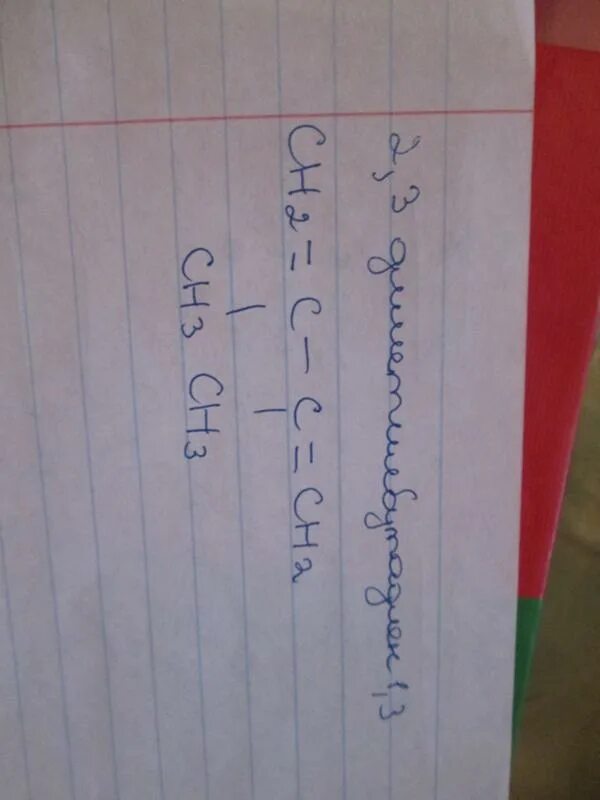 2,3 диметилбутадиен 1,3
CH2=C-C=CH2
CH3 CH3